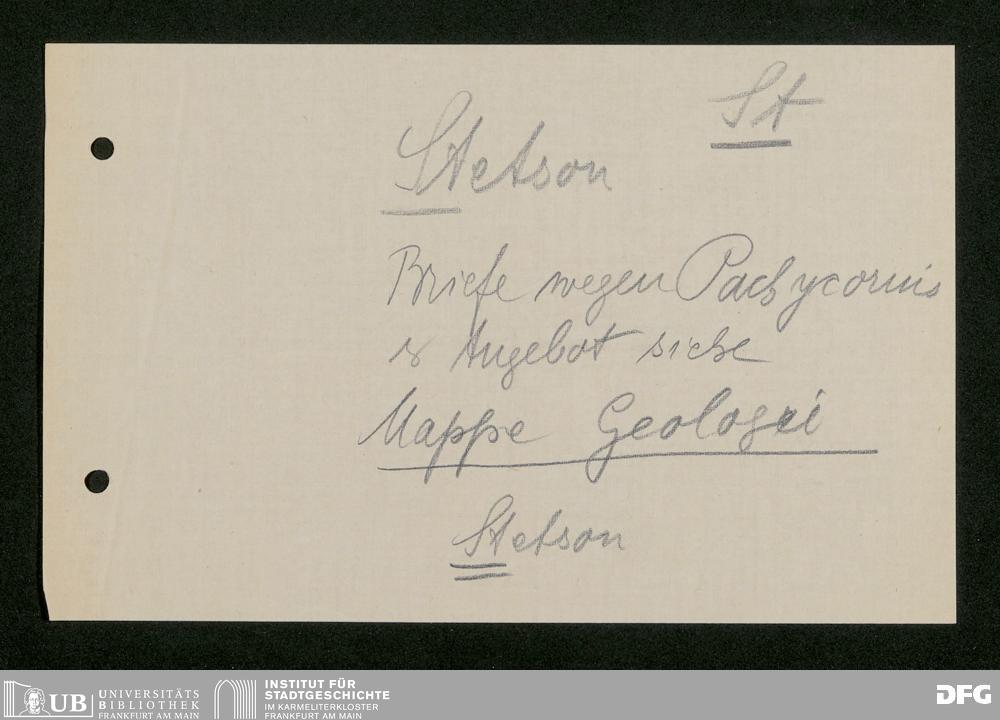 St
Stetson
Briefe wegen Pachycormis
& Angebot siehe
Mappe Geologei
Stetson
UB UNIVERSITÄTS
BIBLIOTHEK
FRANKFURT AM MAIN
INSTITUT FÜR
STADTGESCHICHTE
IM KARMELITERKLOSTER
FRANKFURT AM MAIN
DFG